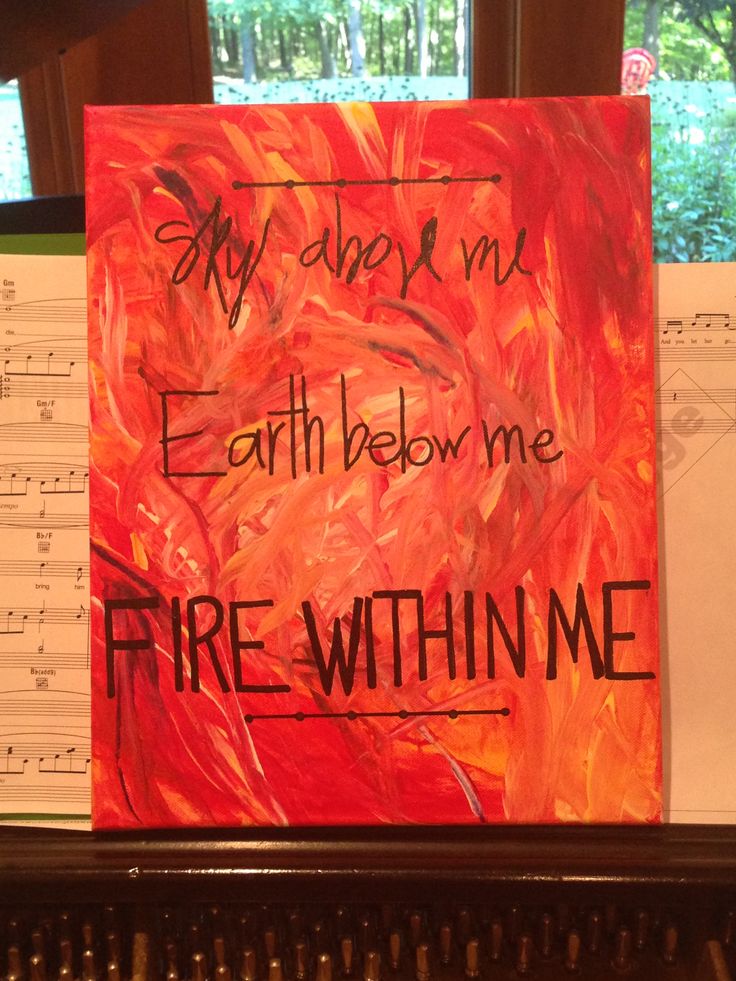 Sky above me
Earth below me
FIRE WITHIN ME
Gm
Gm/F
Bb/F
bring him
Bb(add9)
And you let her go